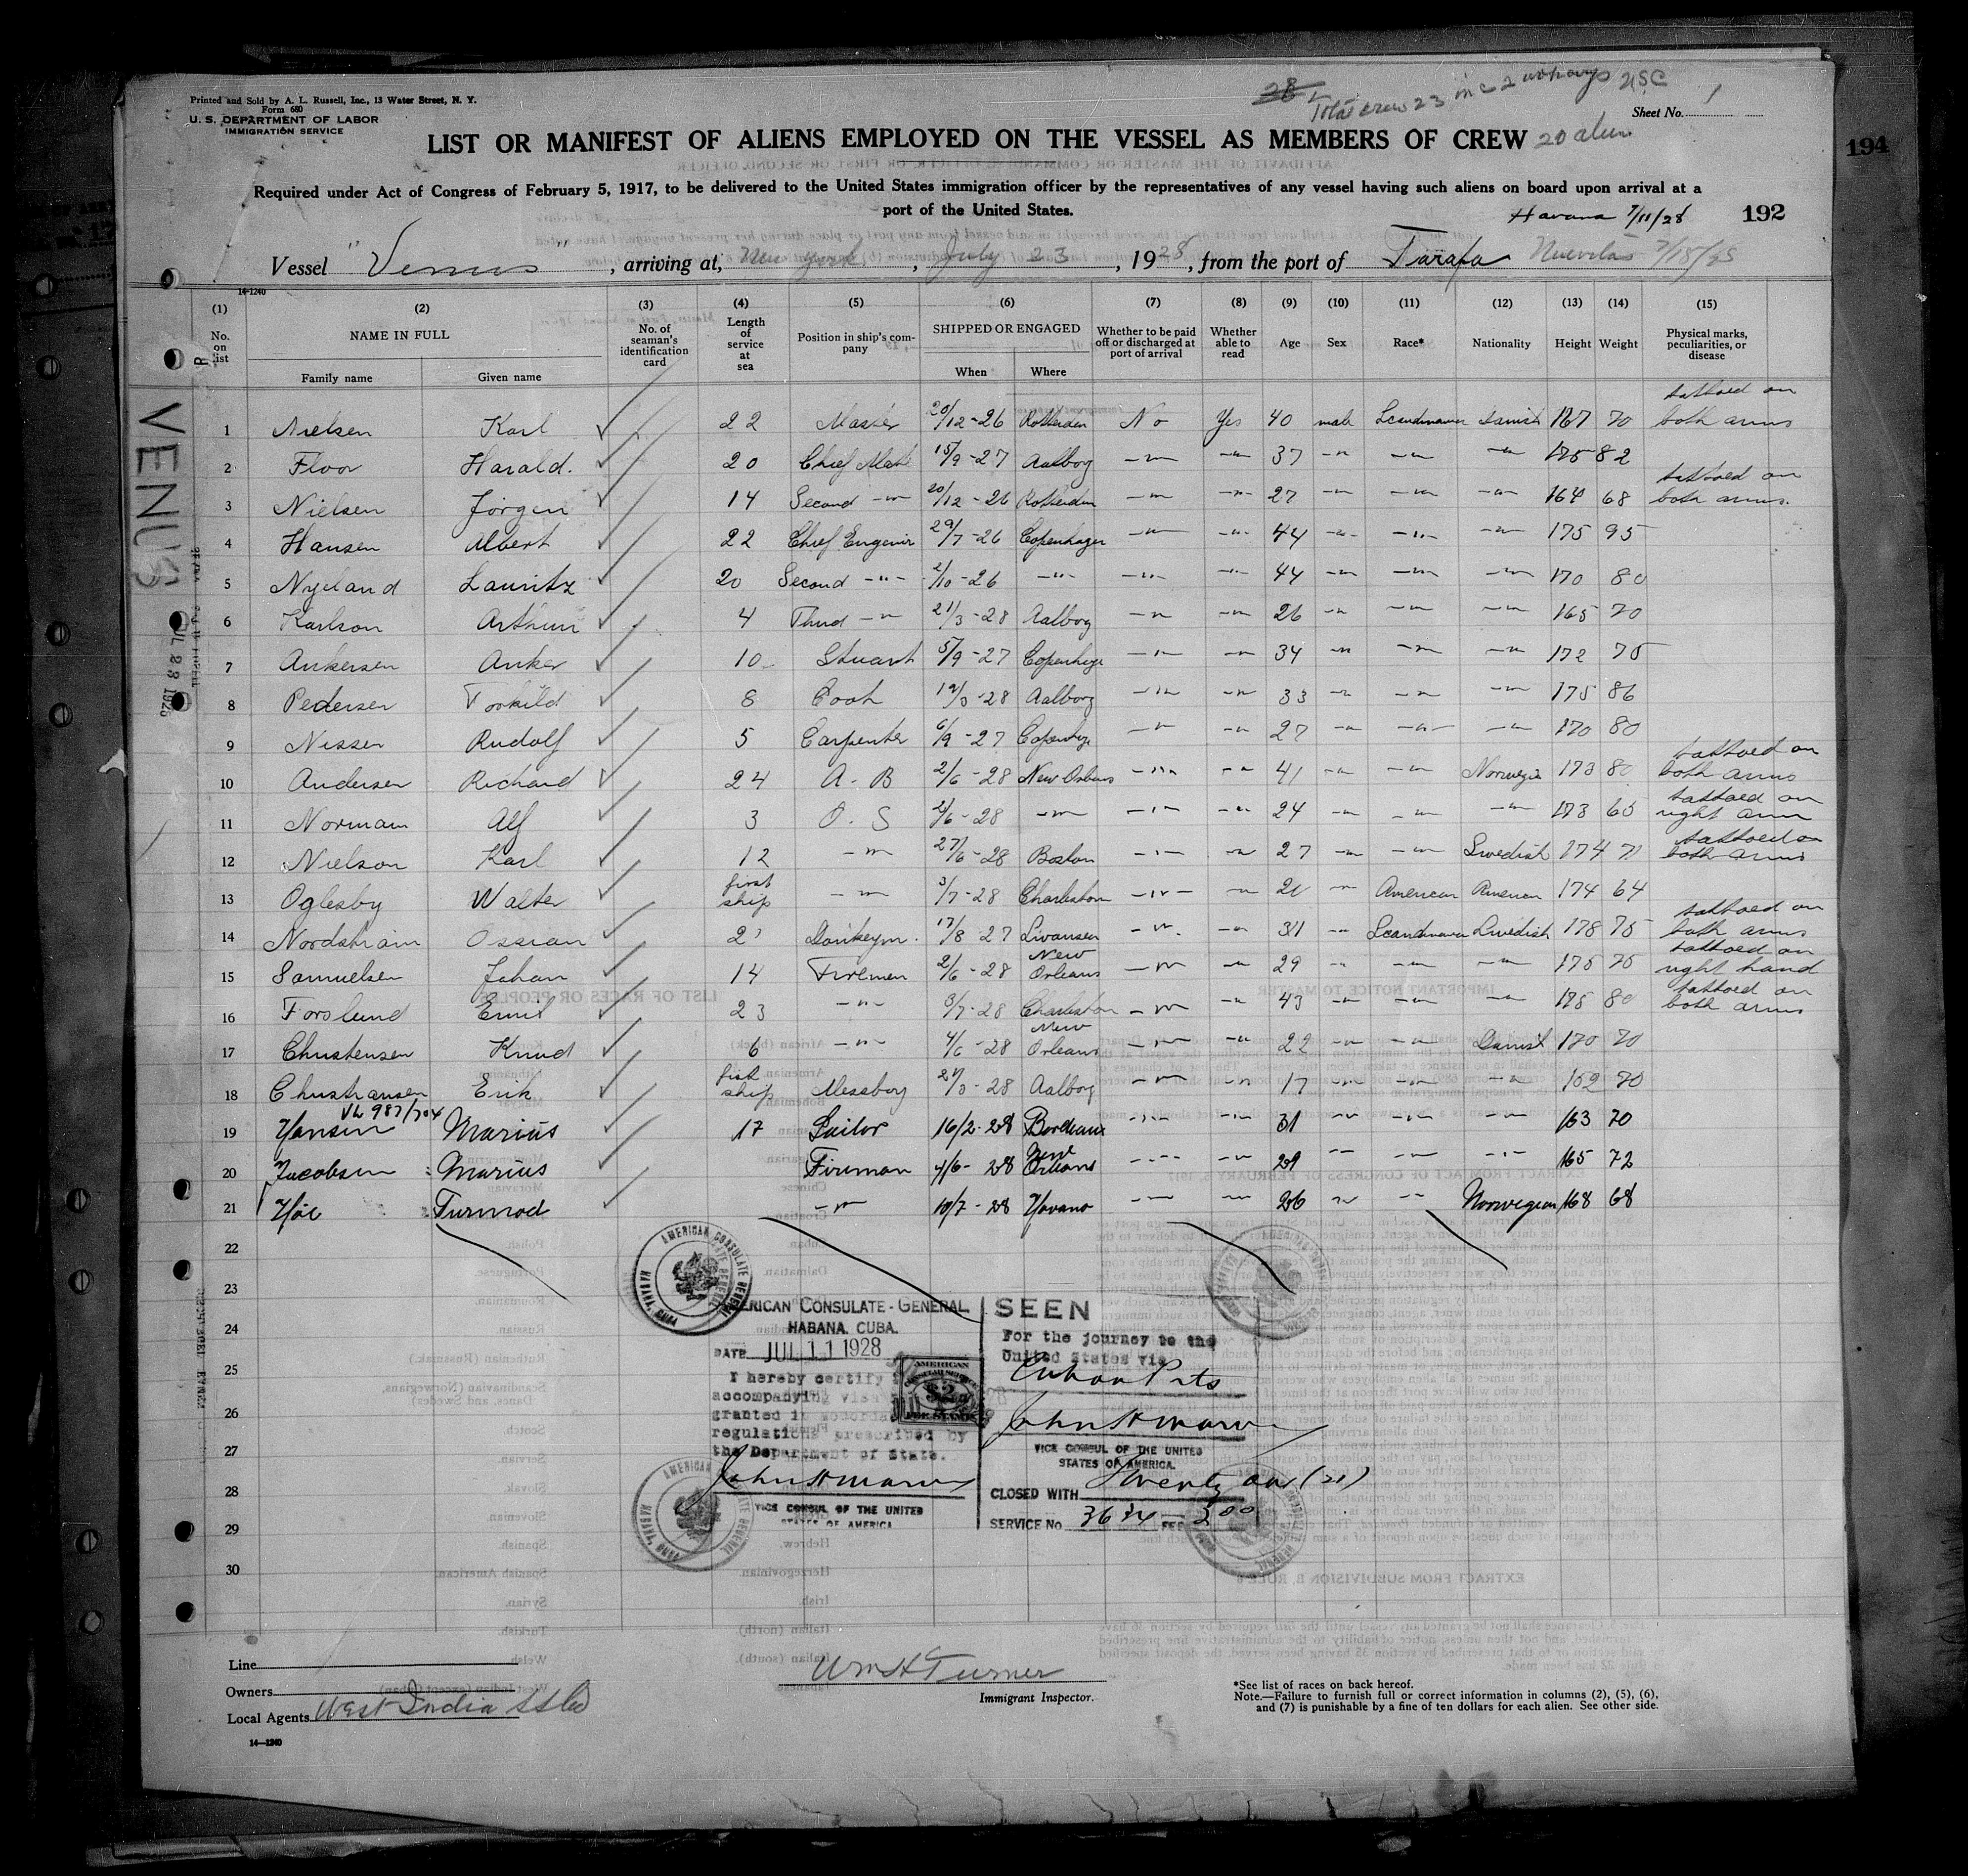 Printed and Sold by A. L. Russell, Inc., 13 Water Street, N. Y.
Form 680
U. S. DEPARTMENT OF LABOR
IMMIGRATION SERVICE
Total crew 23 inc 2 USC
Sheet No. 1
LIST OR MANIFEST OF ALIENS EMPLOYED ON THE VESSEL AS MEMBERS OF CREW 20 alien
194
Required under Act of Congress of February 5, 1917, to be delivered to the United States immigration officer by the representatives of any vessel having such aliens on board upon arrival at a
port of the United States.
Havana 7/11/28 192
Vessel "Venus", arriving at, New York, July 23, 1928, from the port of Tarafa Nuevitas
14-1240
(1) (2) (3) (4) (5) (6) (7) (8) (9) (10) (11) (12) (13) (14) (15)
No. on list NAME IN FULL Family name Given name No. of seaman's identification card Length of service at sea Position in ship's company SHIPPED OR ENGAGED When Where Whether to be paid off or discharged at port of arrival Whether able to read Age Sex Race* Nationality Height Weight Physical marks, peculiarities, or disease
1 Nielsen Karl 22 Master 20/12-26 Rotterdam No Yes 40 male Scandinavian Danish 167 70 tattoed on both arms
2 Floor Harald. 20 Chief Mate 15/9-27 Aalborg -"- -"- 37 -"- -"- -"- 175 82
3 Nielsen Jörgen 14 Second -"- 20/12-26 Rotterdam -"- -"- 27 -"- -"- -"- 164 68 tattoed on both arms.
4 Hansen Albert 22 Chief Engenir 29/7-26 Copenhagen -"- -"- 44 -"- -"- -"- 175 95
5 Nyeland Lauritz 20 Second -"- 2/10-26 -"- -"- -"- 44 -"- -"- -"- 170 80
6 Karlson Arthur 4 Third -"- 21/3-28 Aalborg -"- -"- 26 -"- -"- -"- 165 70
7 Ankersen Anker 10 Stuart 5/9-27 Copenhage -"- -"- 34 -"- -"- -"- 172 75
8 Pedersen Torkild 8 Cook 19/3-28 Aalborg -"- -"- 33 -"- -"- -"- 175 86
9 Nissen Rudolf 5 Carpenter 6/9-27 Copenhage -"- -"- 27 -"- -"- -"- 170 80
10 Andersen Richard 24 A-B 2/6-28 New Orleans -"- -"- 41 -"- -"- Norwegia 173 80 tattoed on both arms
11 Norman Alf 3 O.S 2/6-28 -"- -"- -"- 24 -"- -"- -"- 173 65 tattoed on right arm
12 Nielson Karl 12 -"- 27/6-28 Boston -"- -"- 27 -"- -"- Swedish 174 71 tattoed on both arms
13 Oglesby Walter first ship -"- 3/7-28 Charleston -"- -"- American American 174 64
14 Nordström Ossian Donkeym. 17/8 27 Swansea -"- -"- 31 -"- Scandinavian Swedish 178 75 tattoed on both arms
15 Samuelsen Johan 14 Firemen 2/6-28 New Orleans -"- -"- 29 -"- -"- -"- 175 75 tattoed on right hand
16 Forslund Emil 23 -"- 3/7-28 Charleston -"- -"- 43 -"- -"- -"- 175 80 tattoed on both arms
17 Christensen Knud 6 -"- 4/6-28 New Orleans -"- -"- 22 -"- -"- Danish 170 70
18 Christiansen Erik first ship Messboy 28 Aalborg -"- -"- 17 -"- -"- -"- 70
19 Hansen Marius 17 Sailor 16/2-28 Bordeaux -"- -"- 31 -"- -"- -"- 163 70
20 Jacobsen Marius Fireman 4/6-28 New Orleans -"- -"- 29 -"- -"- -"- 165 72
21 Höe Turmod -"- 10/7-28 Havano -"- -"- 26 -"- -"- Norwegian 168 68
22
23
24
25
26
27
28
29
30
VENUS
AMERICAN CONSULATE GENERAL
HABANA, CUBA
AMERICAN CONSULATE-GENERAL
HABANA. CUBA.
DATE JUL 11 1928
I hereby certify
accompanying visa
granted in accordance
regulations prescribed by
the Department of State.
VICE CONSUL OF THE UNITED
STATES OF AMERICA
AMERICAN
$2
FEE STAMP
SEEN
For the journey to the
United States via
Cuban Ports
VICE CONSUL OF THE UNITED
STATES OF AMERICA.
CLOSED WITH Twenty one (21)
SERVICE No. 3634 FEE 2.00
Line
Owners
Local Agents West India SS Co
14—1240
Wm H Turner
Immigrant Inspector.
*See list of races on back hereof.
Note.—Failure to furnish full or correct information in columns (2), (5), (6),
and (7) is punishable by a fine of ten dollars for each alien. See other side.